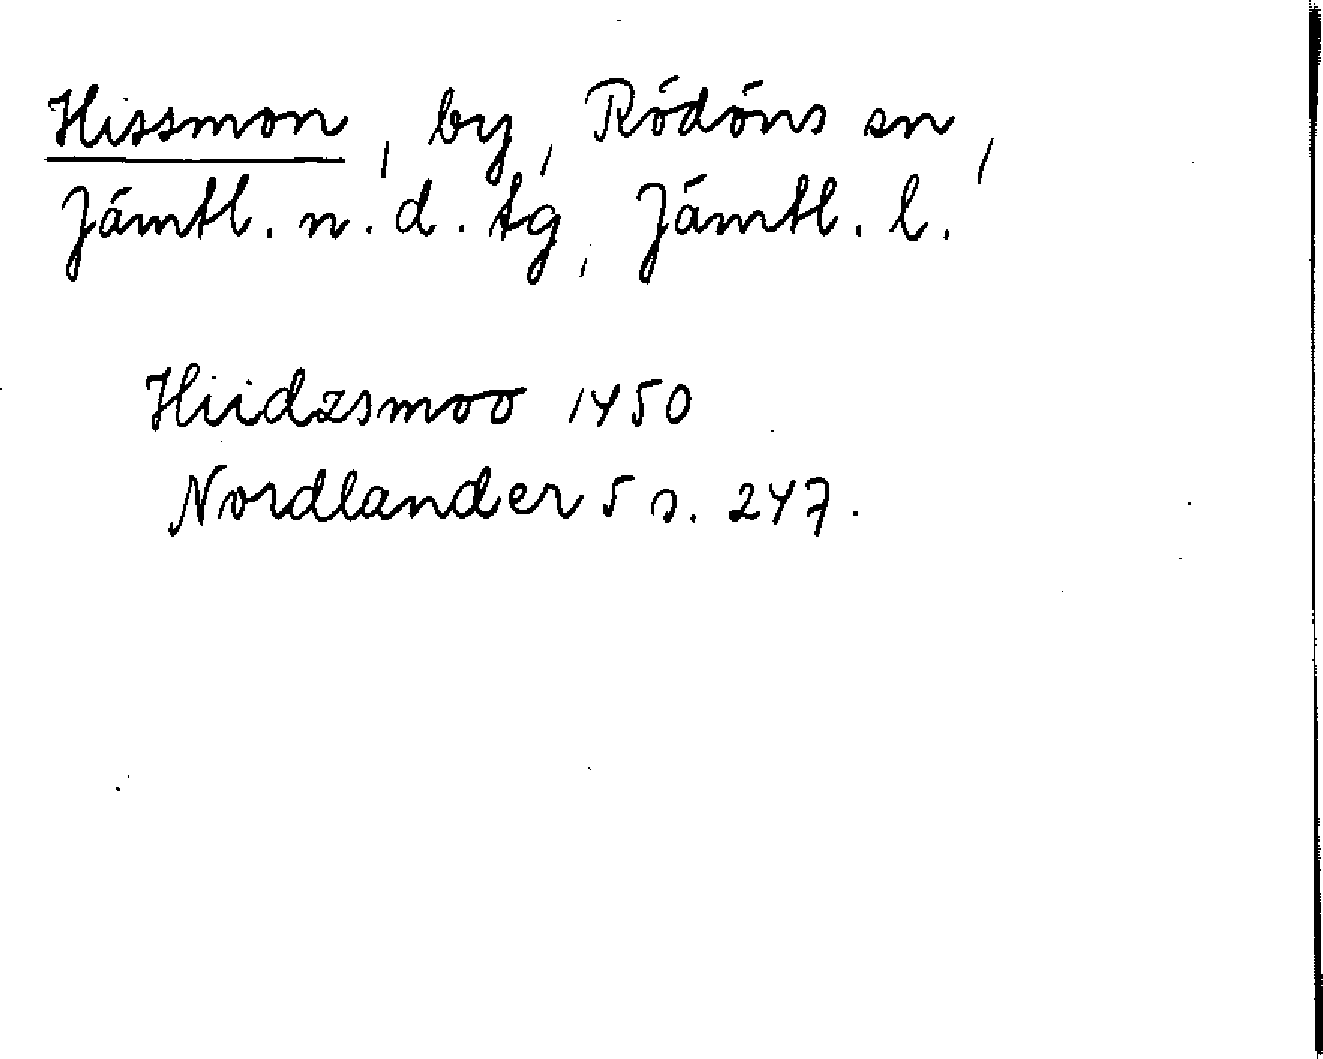 Hissmon, by, Rödöns sn,
Jämtl. n. d. tg, Jämtl. l.
Hiidzsmoo 1450
Nordlander 5 s. 247.